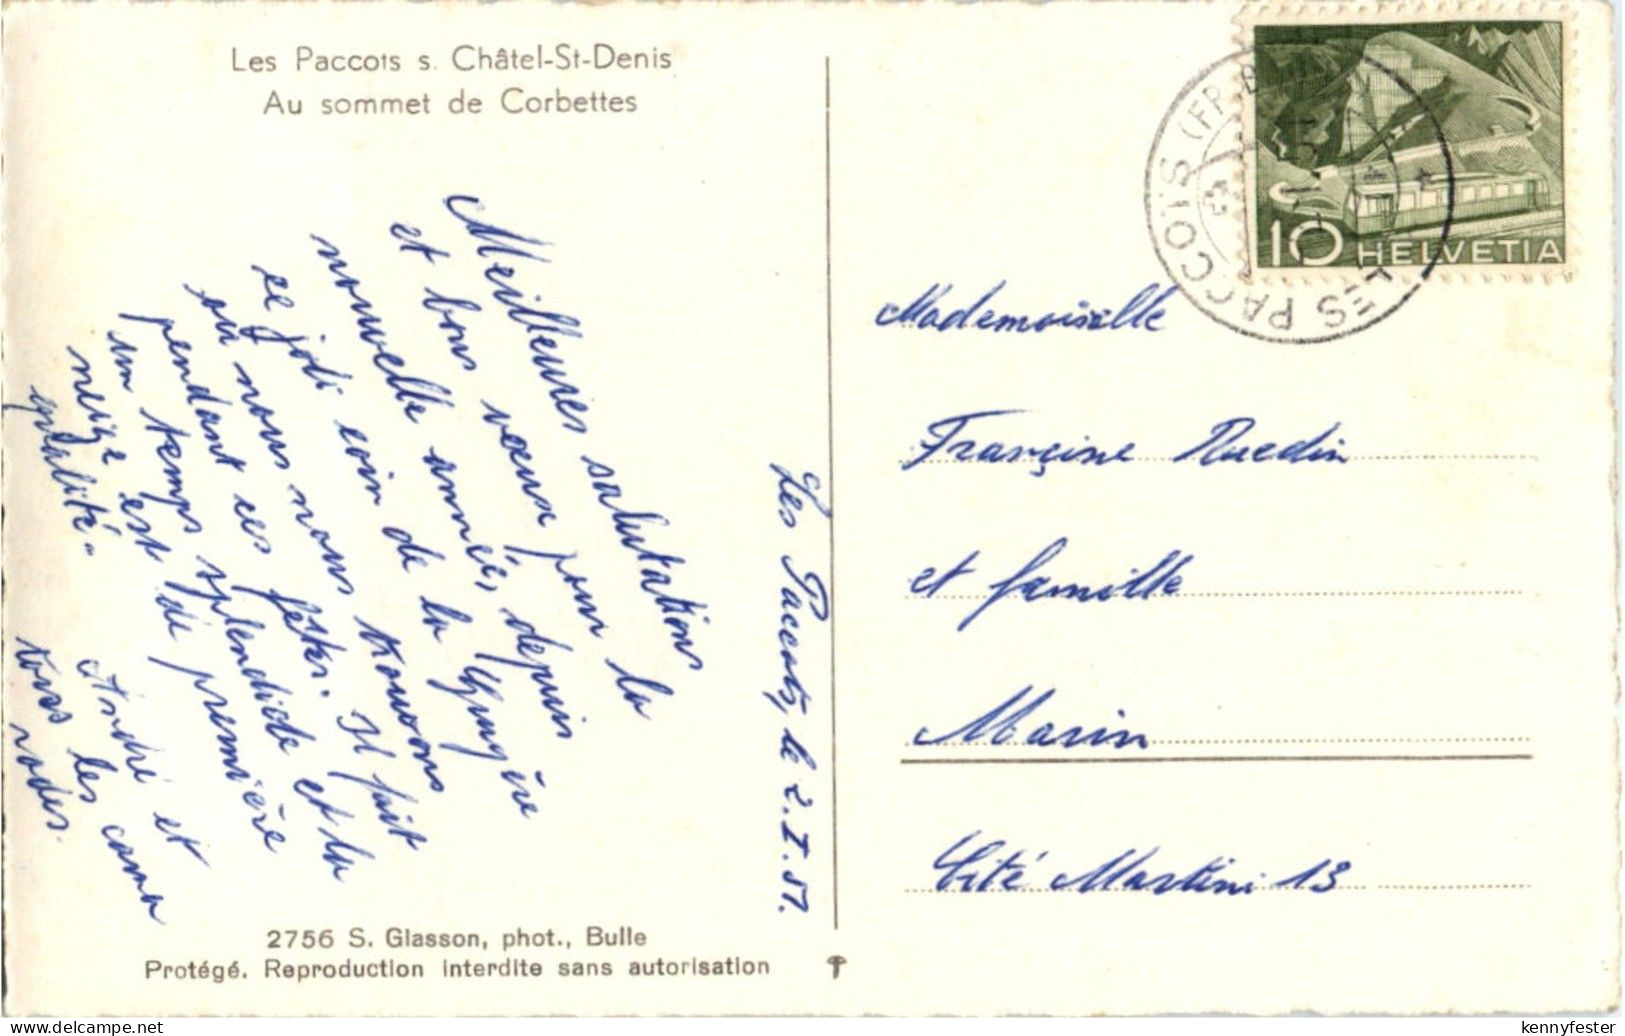 Les Paccots s. Châtel-St-Denis
Au sommet de Corbettes
Meilleures salutations
et bons vœux pour la
nouvelle année, depuis
ce joli coin de la Gruyère
où nous nous trouvons
pendant ces fêtes. Il fait
un temps splendide et la
neige est de première
qualité.
André et
tous les cama
rades.
Les Paccots, le 2.I.51.
2756 S. Glasson, phot., Bulle
Protégé. Reproduction interdite sans autorisation
LES PACCOTS (FRIBOURG)
10 HELVETIA
Mademoiselle
Françine Ruedin
et famille
Marin
Cité Martini 13
www.delcampe.net
kennyfester